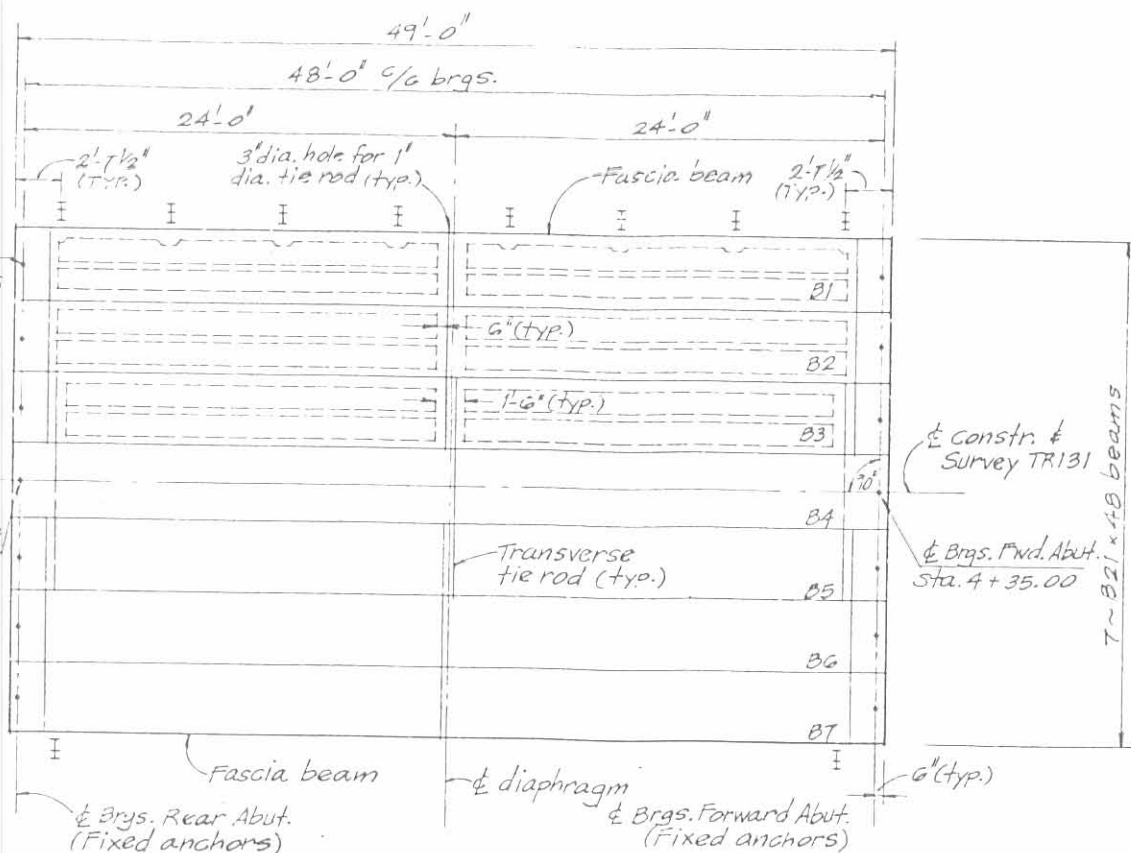 49'-0"
48'-0" c/c brgs.
24'-0"
24'-0"
2'-7½"
(Typ.)
3" dia. hole for 1"
dia. tie rod (typ.)
Fascia beam
2'-7½"
(Typ.)
B1
6" (typ.)
B2
1'-6" (typ.)
B3
℄ Constr. &
Survey TR131
90°
B4
℄ Brgs. Fwd. Abut.
Sta. 4 + 35.00
Transverse
tie rod (typ.)
B5
7 ~ B21 x 48 beams
B6
B7
Fascia beam
℄ diaphragm
6" (typ.)
℄ Brgs. Rear Abut.
(Fixed anchors)
℄ Brgs. Forward Abut.
(Fixed anchors)